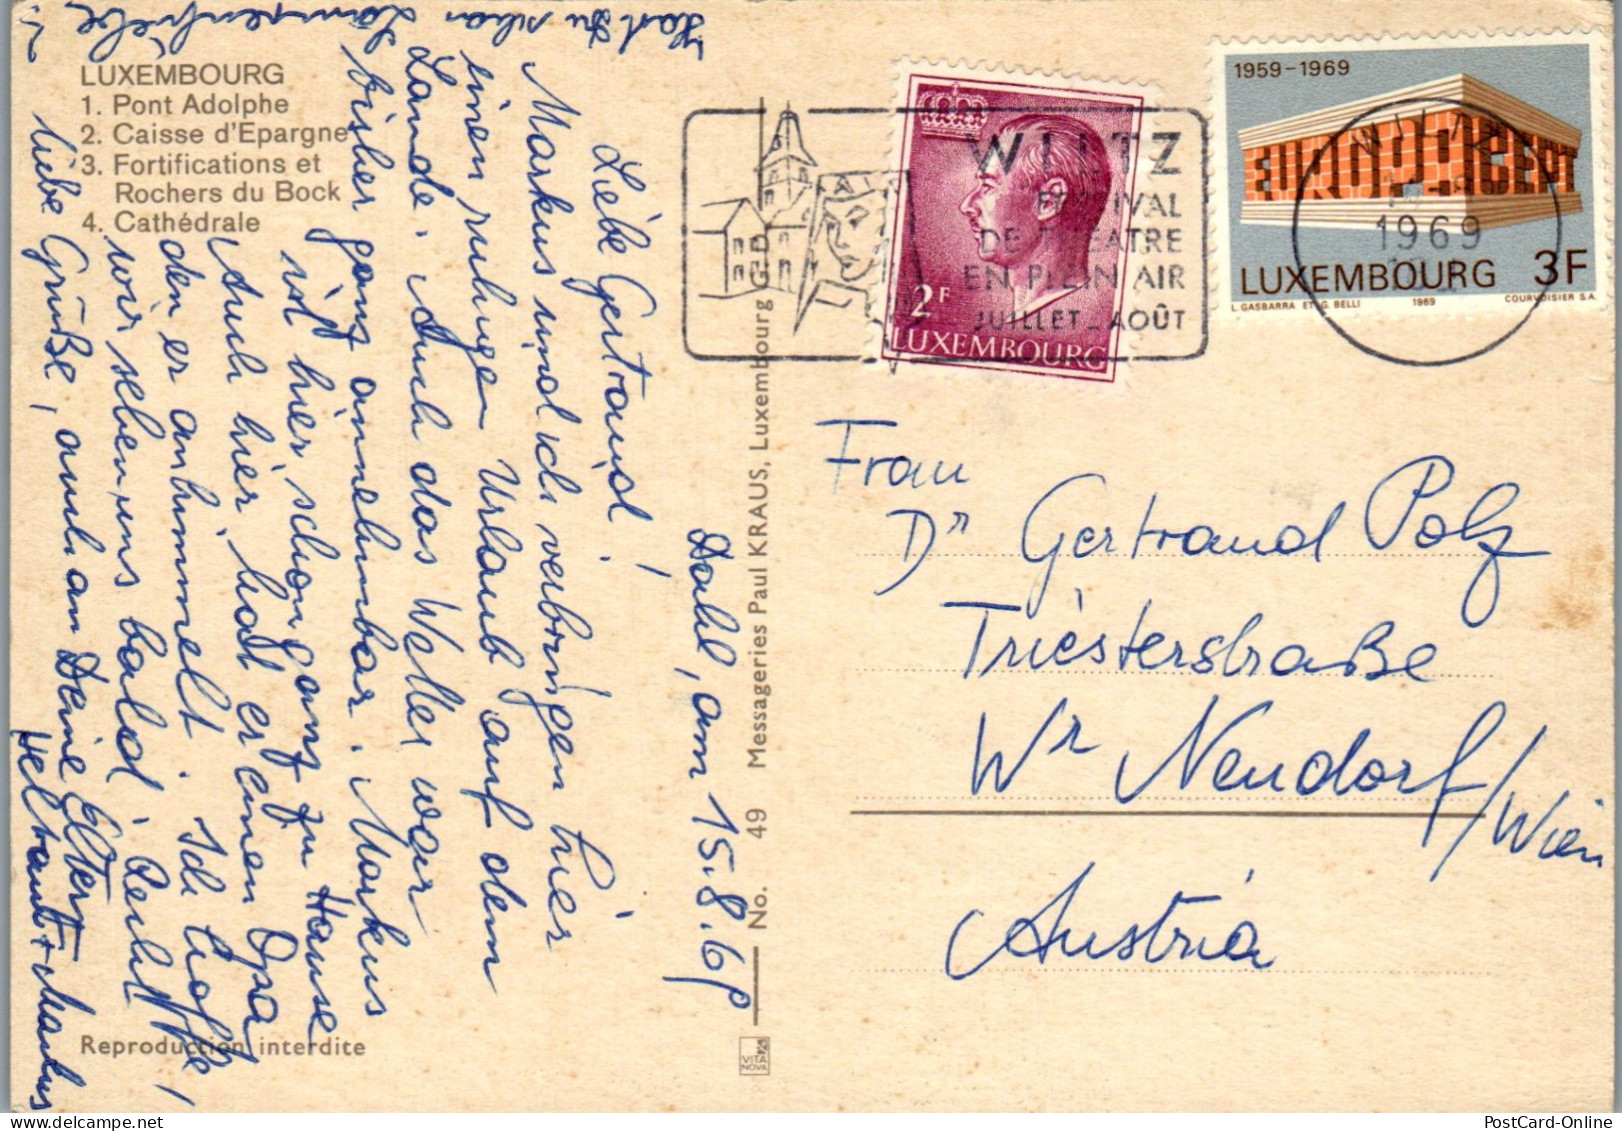 LUXEMBOURG
1. Pont Adolphe
2. Caisse d'Epargne
3. Fortifications et
Rochers du Bock
4. Cathédrale
Reproduction interdite
No. 49 Messageries Paul KRAUS, Luxembourg G.D.
VITA
NOVA
Dahl, am 15.8.69
Liebe Gertraud!
Markus und ich verbringen hier
einen ruhigen Urlaub auf dem
Lande. Auch das Wetter war
bisher ganz annehmbar. Markus
ist hier schon ganz zu Hause
Auch hier hat er einen Opa
den er anhimmelt. Ich hoffe,
wir sehen uns bald. Recht
liebe Grüße, auch an Deine Eltern
Markus
Hast Du schon
WILTZ
FESTIVAL
DE THEATRE
EN PLEIN AIR
JUILLET - AOÛT
2F
LUXEMBOURG
1959-1969
EUROPA CEPT
LUXEMBOURG 3F
L. GASBARRA ET G. BELLI 1969 COURVOISIER S.A.
WILTZ
1969
Frau
Dr Gertraud Polz
Triesterstraße
Wr Neudorf/Wien
Austria
PostCard-Online